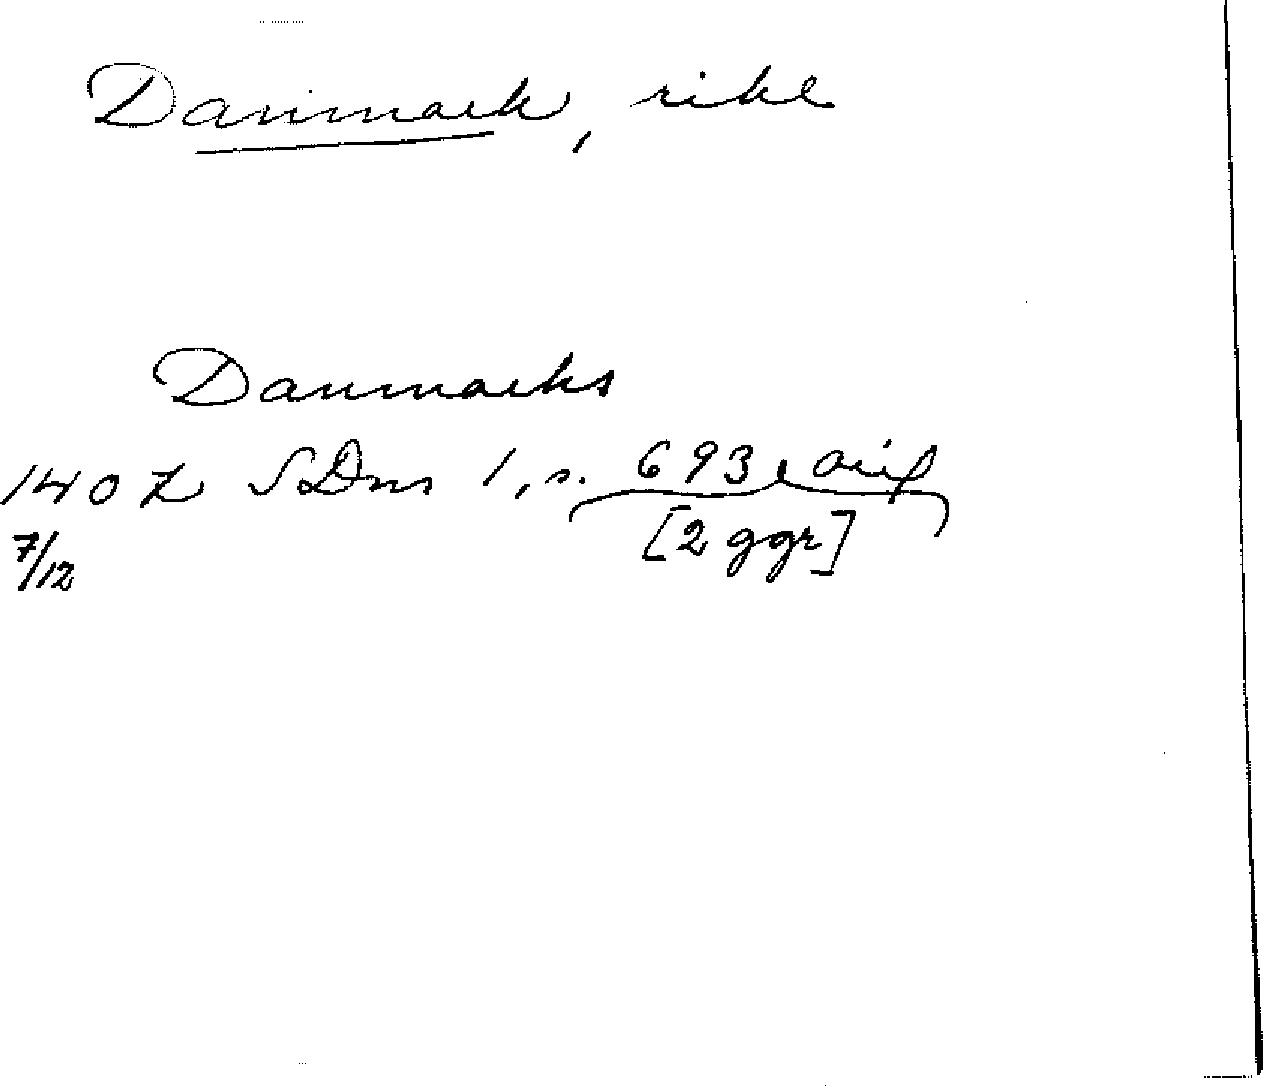 Danmark, rike
Danmarks
1407 SDns 1, s. 693 orig
7/12 [2 ggr]